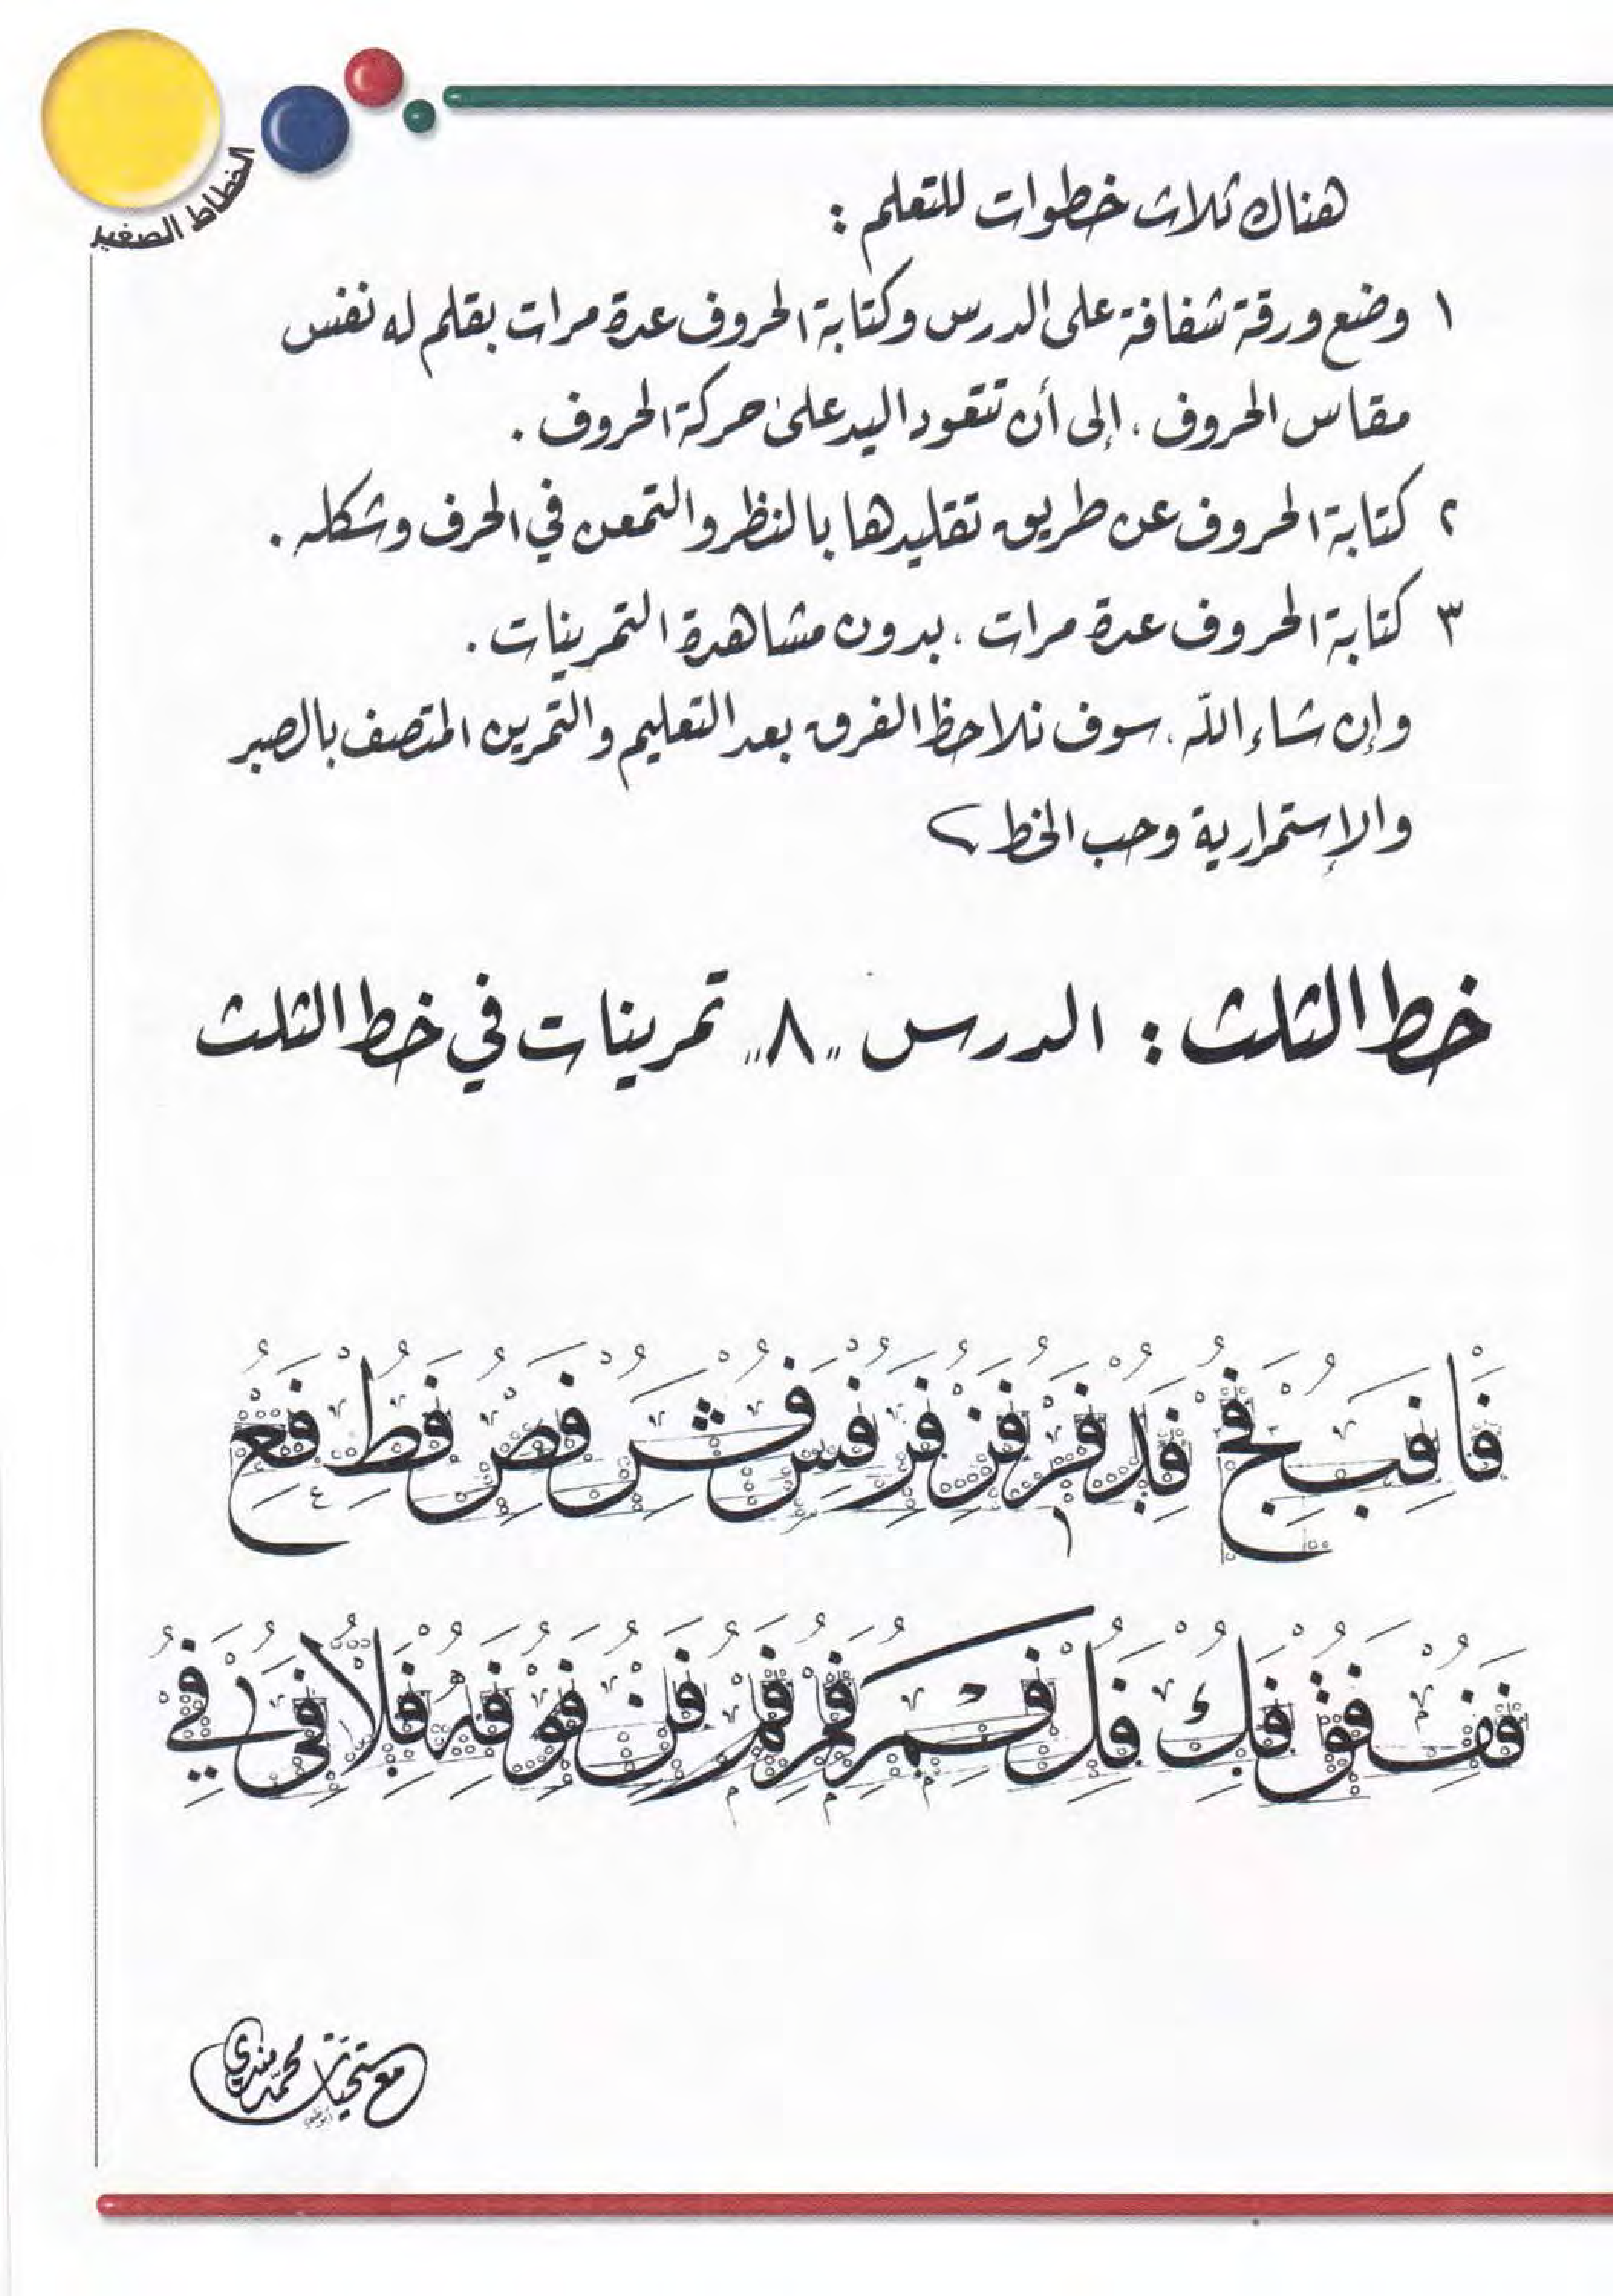 الخطاط الصغير
هناك ثلاث خطوات للتعلم :
١ وضع ورقة شفافة على الدرس وكتابة الحروف عدة مرات بقلم له نفس
مقاس الحروف ، إلى أن تتعود اليد على حركة الحروف .
٢ كتابة الحروف عن طريق تقليدها بالنظر والتمعن في الحرف وشكله .
٣ كتابة الحروف عدة مرات ، بدون مشاهدة التمرينات .
وإن شاء اللّه ، سوف نلاحظ الفرق بعد التعليم والتمرين المتصف بالصبر
والإستمرارية وحب الخط
خط الثلث : الدرس "٨" تمرينات في خط الثلث
فا فب فج فد فر فز فر فس فش فص فط فع
فف فق فك فل فم فم فم فن فو فه فلا في في
مع تحيات محمد مندي
أبوظبي